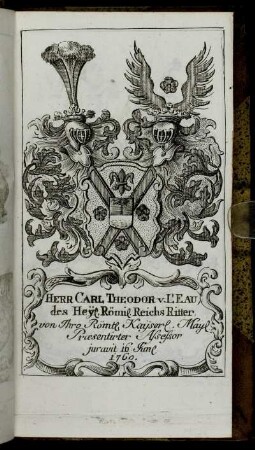 HERR CARL THEODOR v. L'EAU
des Heyl. Römis. Reichs Ritter.
von Ihro Römis. Kayserl. May.
Præsentirter Assessor
juravit 16 Junÿ
1760.